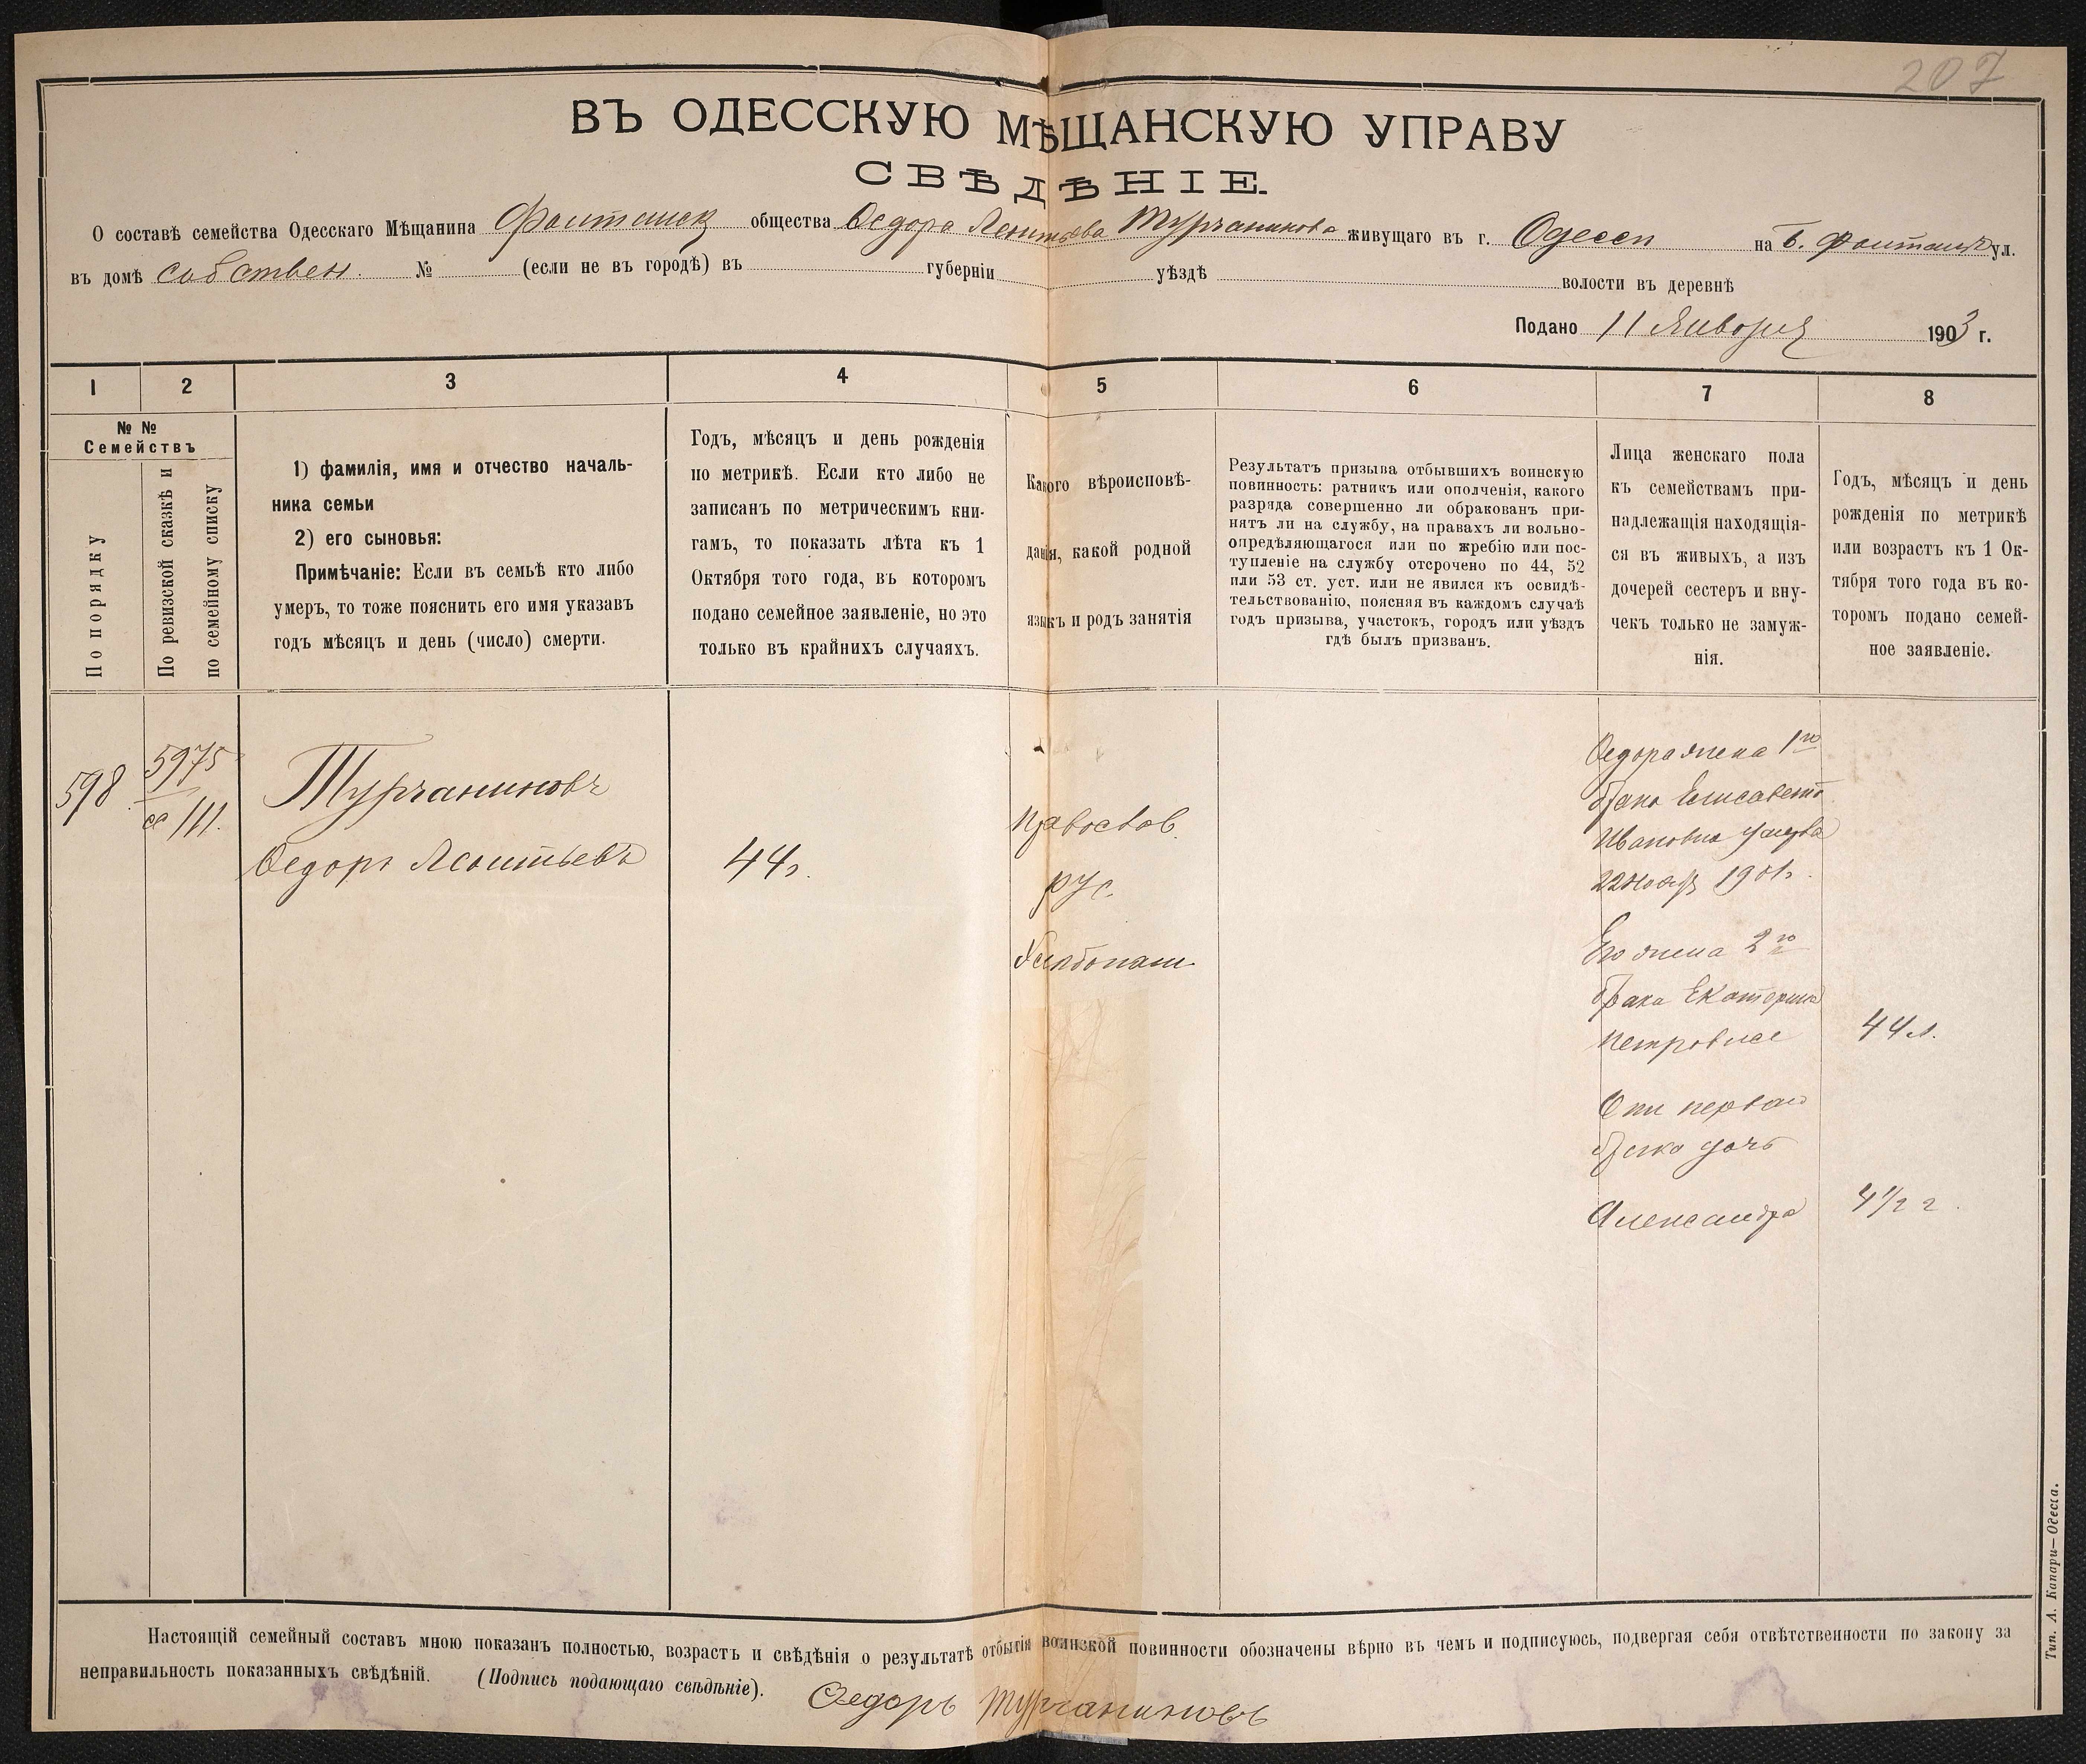 207
ВЪ ОДЕССКУЮ МѢЩАНСКУЮ УПРАВУ
СВѢДѢНІЕ.
О составѣ семейства Одесскаго Мѣщанина Фонтанск общества Ѳедора Леонтьева Турчанинова живущаго въ г. Одессѣ на Б. Фонтанѣ ул.
въ домѣ собствен. № (если не въ городѣ) въ губерніи уѣздѣ волости въ деревнѣ
Подано 11 Января 1903 г.
1 2 3 4 5 6 7 8
№ №
Семействъ
По порядку
По ревизской сказкѣ и
по семейному списку
1) фамилія, имя и отчество началь-
ника семьи
2) его сыновья:
Примѣчаніе: Если въ семьѣ кто либо
умеръ, то тоже пояснить его имя указавъ
годъ мѣсяцъ и день (число) смерти.
Годъ, мѣсяцъ и день рожденія
по метрикѣ. Если кто либо не
записанъ по метрическимъ кни-
гамъ, то показать лѣта къ 1
Октября того года, въ которомъ
подано семейное заявленіе, но это
только въ крайнихъ случаяхъ.
Какого вѣроисповѣ-
данія, какой родной
языкъ и родъ занятія
Результатъ призыва отбывшихъ воинскую
повинность: ратникъ или ополченія, какого
разряда совершенно ли обракованъ при-
нятъ ли на службу, на правахъ ли вольно-
опредѣляющагося или по жребію или пос-
тупленіе на службу отсрочено по 44, 52
или 53 ст. уст. или не явился къ освидѣ-
тельствованію, поясняя въ каждомъ случаѣ
годъ призыва, участокъ, городъ или уѣздъ
гдѣ былъ призванъ.
Лица женскаго пола
къ семействамъ при-
надлежащія находящія-
ся въ живыхъ, а изъ
дочерей сестеръ и вну-
чекъ только не замуж-
нія.
Годъ, мѣсяцъ и день
рожденія по метрикѣ
или возрастъ къ 1 Ок-
тября того года въ ко-
торомъ подано семей-
ное заявленіе.
598
5975
111.
Турчаниновъ
Ѳедоръ Леонтьевъ
44г.
Православ.
рус.
Хлѣбопаш
Ѳедора жена 1го
брака Елисавета
Ивановна умерла
22 Ноябр 1901г.
Его жена 2го
брака Екатерина
Петровна
44 л.
Отъ перваго
брака дочь
Александра
4 1/2 г.
Настоящій семейный составъ мною показанъ полностью, возрастъ и свѣдѣнія о результатѣ отбытія воинской повинности обозначены вѣрно въ чемъ и подписуюсь, подвергая себя отвѣтственности по закону за
неправильность показанныхъ свѣдѣній. (Подпись подающаго свѣдѣніе).
Ѳедоръ Турчаниновъ
Тип. А. Капари—Одесса.